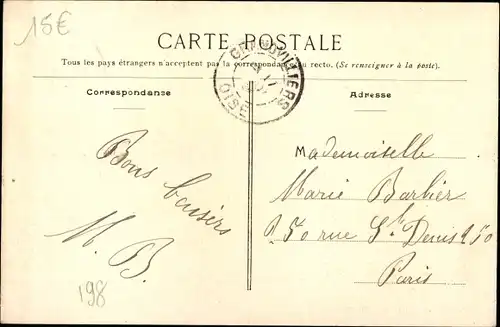 15€
CARTE POSTALE
Tous les pays étrangers n'acceptent pas la correspondance au recto. (Se renseigner à la poste).
GRANDVILLIERS
OISE
Correspondance
Adresse
Bons baisers
M. B.
198
Mademoiselle
Marie Barbier
250 rue St Denis 250
Paris